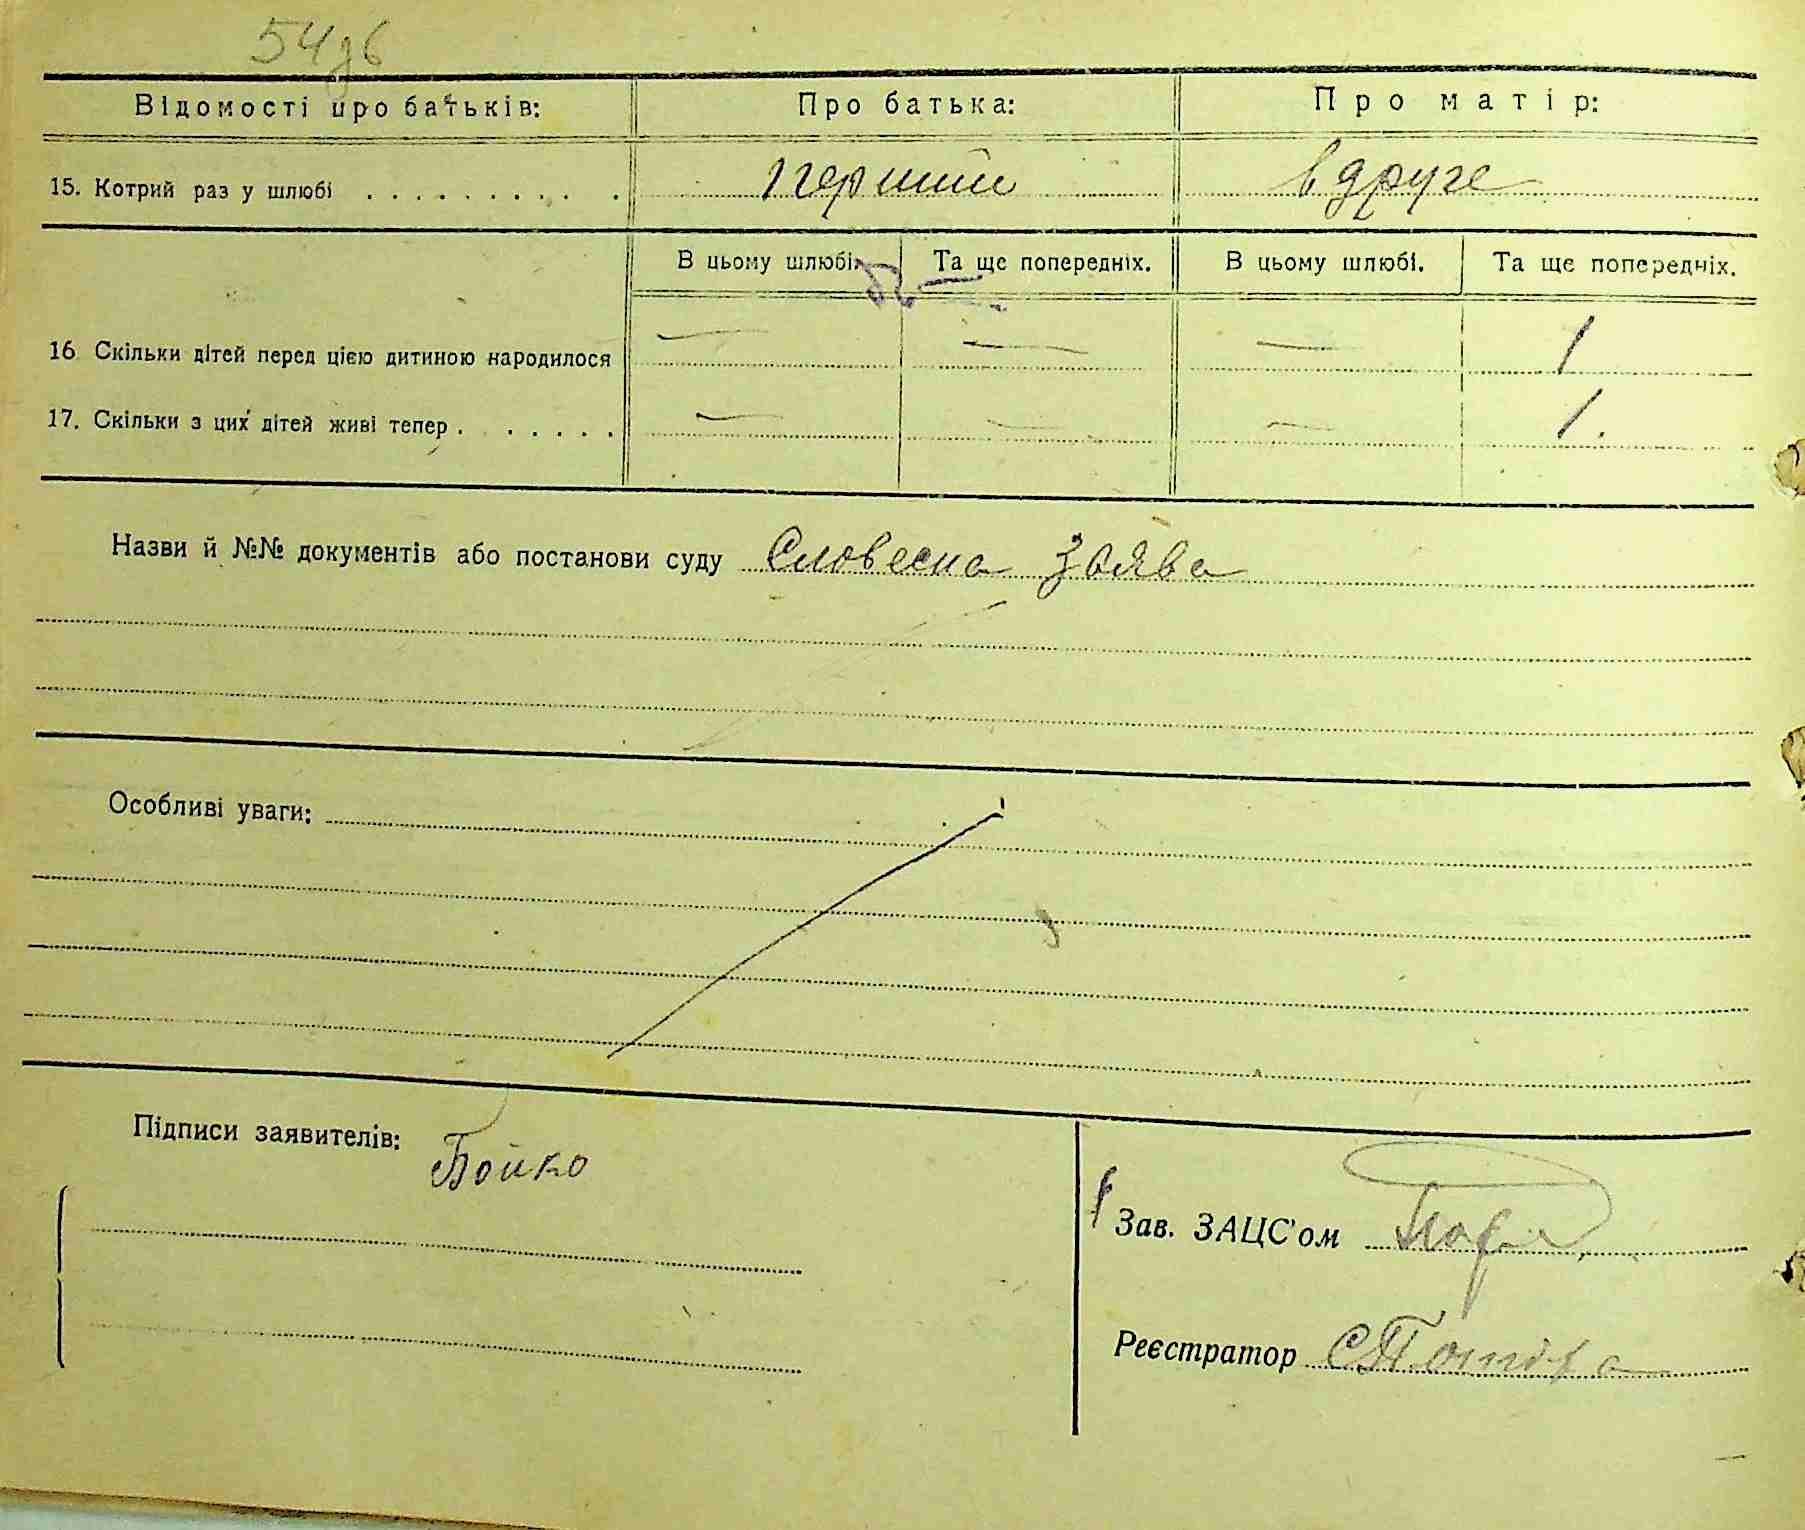 54зв
Відомості про батьків: Про батька: Про матір:
15. Котрий раз у шлюбі . . . . . . . . . . перший вдруге
В цьому шлюбі. Та ще попередніх. В цьому шлюбі. Та ще попередніх.
16 Скільки дітей перед цією дитиною народилося — — — 1
17. Скільки з цих дітей живі тепер . . . . . . . — — — 1.
Назви й №№ документів або постанови суду Словесна заява
Особливі уваги:
Підписи заявителів: Бойко
Зав. ЗАЦС'ом
Реєстратор